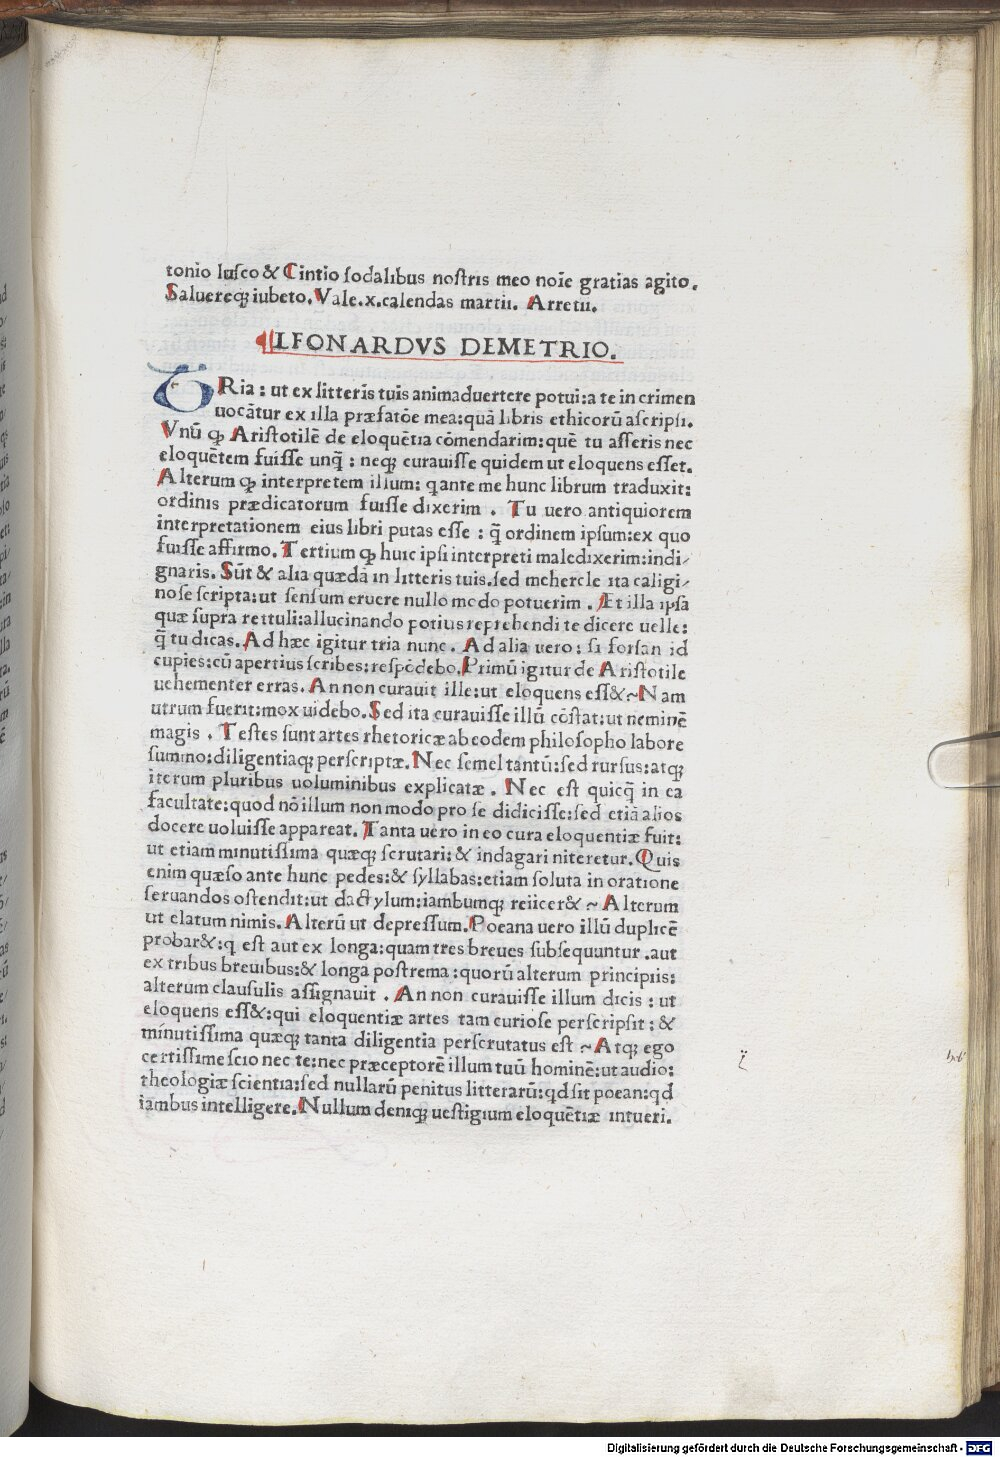 tonio lusco & Cintio sodalibus nostris meo noie gratias agito.
Saluereq; iubeto. Vale. x. calendas martii. Arretii.
LEONARDVS DEMETRIO.
TRia : ut ex litteris tuis animaduertere potui: a te in crimen
uocātur ex illa præfatōe mea: quā libris ethicorū ascripsi.
Vnū ꝙ Aristotilē de eloquētia cōmendarim: quē tu asseris nec
eloquētem fuisse unq̄ : neq; curauisse quidem ut eloquens esset.
Alterum ꝙ interpretem illum: q ante me hunc librum traduxit:
ordinis prædicatorum fuisse dixerim . Tu uero antiquiorem
interpretationem eius libri putas esse : q̄ ordinem ipsum: ex quo
fuisse affirmo. Tertium ꝙ huic ipsi interpreti maledixerim: indi/
gnaris. Sūt & alia quædā in litteris tuis. sed mehercle ita caligi/
nose scripta: ut sensum eruere nullo modo potuerim . Et illa ipsa
quæ supra rettuli: allucinando potius reprehendi te dicere uelle:
q̄ tu dicas. Ad hæc igitur tria nunc. Ad alia uero : si forsan id
cupies: cū apertius scribes: respōdebo. Primū igitur de Aristotile
uehementer erras. An non curauit ille: ut eloquens ess& ~ Nam
utrum fuerit: mox uidebo. Sed ita curauisse illū cōstat: ut neminē
magis . Testes sunt artes rhetoricæ ab eodem philosopho labore
summo: diligentiaq; perscriptæ. Nec semel tantū: sed rursus: atq;
iterum pluribus uoluminibus explicatæ . Nec est quicq̄ in ea
facultate: quod nō illum non modo pro se didicisse: sed etiā alios
docere uoluisse appareat. Tanta uero in eo cura eloquentiæ fuit:
ut etiam minutissima quæq; scrutari: & indagari niteretur. Quis
enim quæso ante hunc pedes: & syllabas: etiam soluta in oratione
seruandos ostendit: ut dactylum: iambumq; reiicer& ~ Alterum
ut elatum nimis. Alterū ut depressum. Poeana uero illū duplicē
probar&: q est aut ex longa: quam tres breues subsequuntur . aut
ex tribus breuibus: & longa postrema : quorū alterum principiis:
alterum clausulis assignauit . An non curauisse illum dicis : ut
eloquens ess&: qui eloquentiæ artes tam curiose perscripsit : &
minutissima quæq; tanta diligentia perscrutatus est ~ Atq; ego
certissime scio nec te: nec præceptorē illum tuū hominē: ut audio:
theologiæ scientia: sed nullarū penitus litterarū: qd sit poean: qd
iambus intelligere. Nullum deniq; uestigium eloquētiæ intueri.
Digitalisierung gefördert durch die Deutsche Forschungsgemeinschaft - DFG